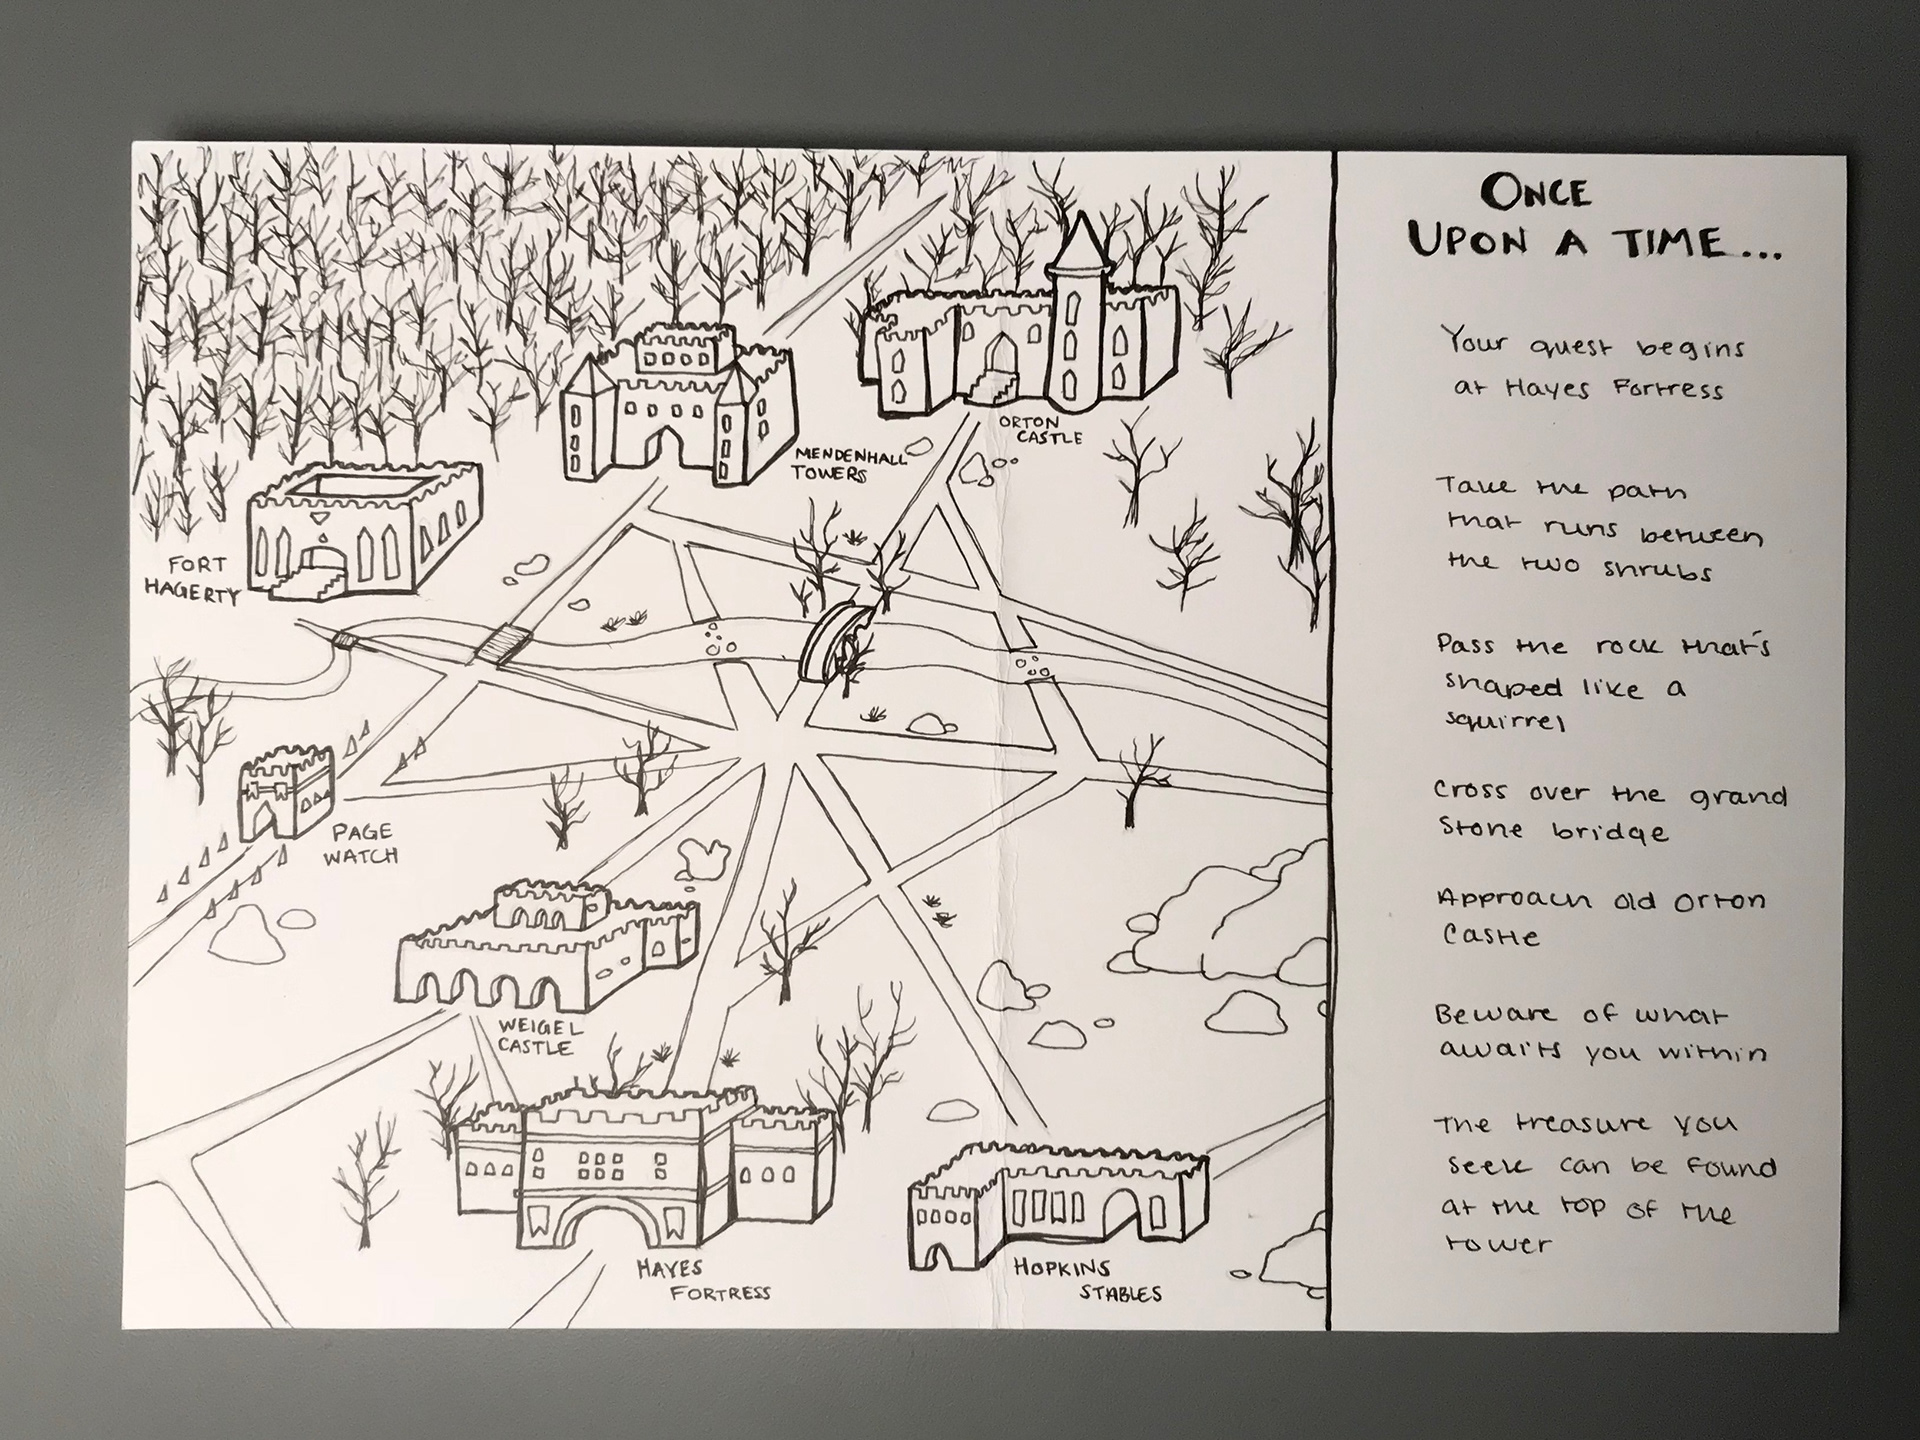 ONCE
UPON A TIME...
Your quest begins
at Hayes Fortress
Take the path
that runs between
the two shrubs
Pass the rock that's
shaped like a
squirrel
Cross over the grand
stone bridge
Approach old Orton
Castle
Beware of what
awaits you within
The treasure you
seek can be found
at the top of the
tower
ORTON
CASTLE
MENDENHALL
TOWERS
FORT
HAGERTY
PAGE
WATCH
WEIGEL
CASTLE
HAYES
FORTRESS
HOPKINS
STABLES